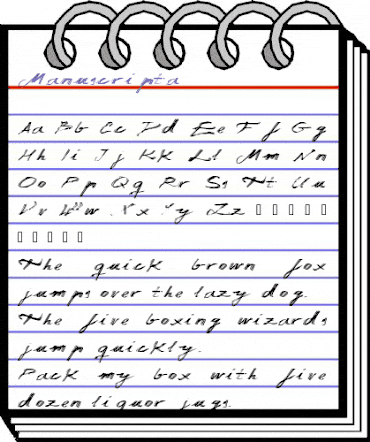 Manuscripta
Aa Bb Cc Dd Ee Ff Gg
Hh Ii Jj Kk Ll Mm Nn
Oo Pp Qq Rr Ss Tt Uu
Vv Ww Xx Yy Zz
The quick brown fox
jumps over the lazy dog.
The five boxing wizards
jump quickly.
Pack my box with five
dozen liquor jugs.